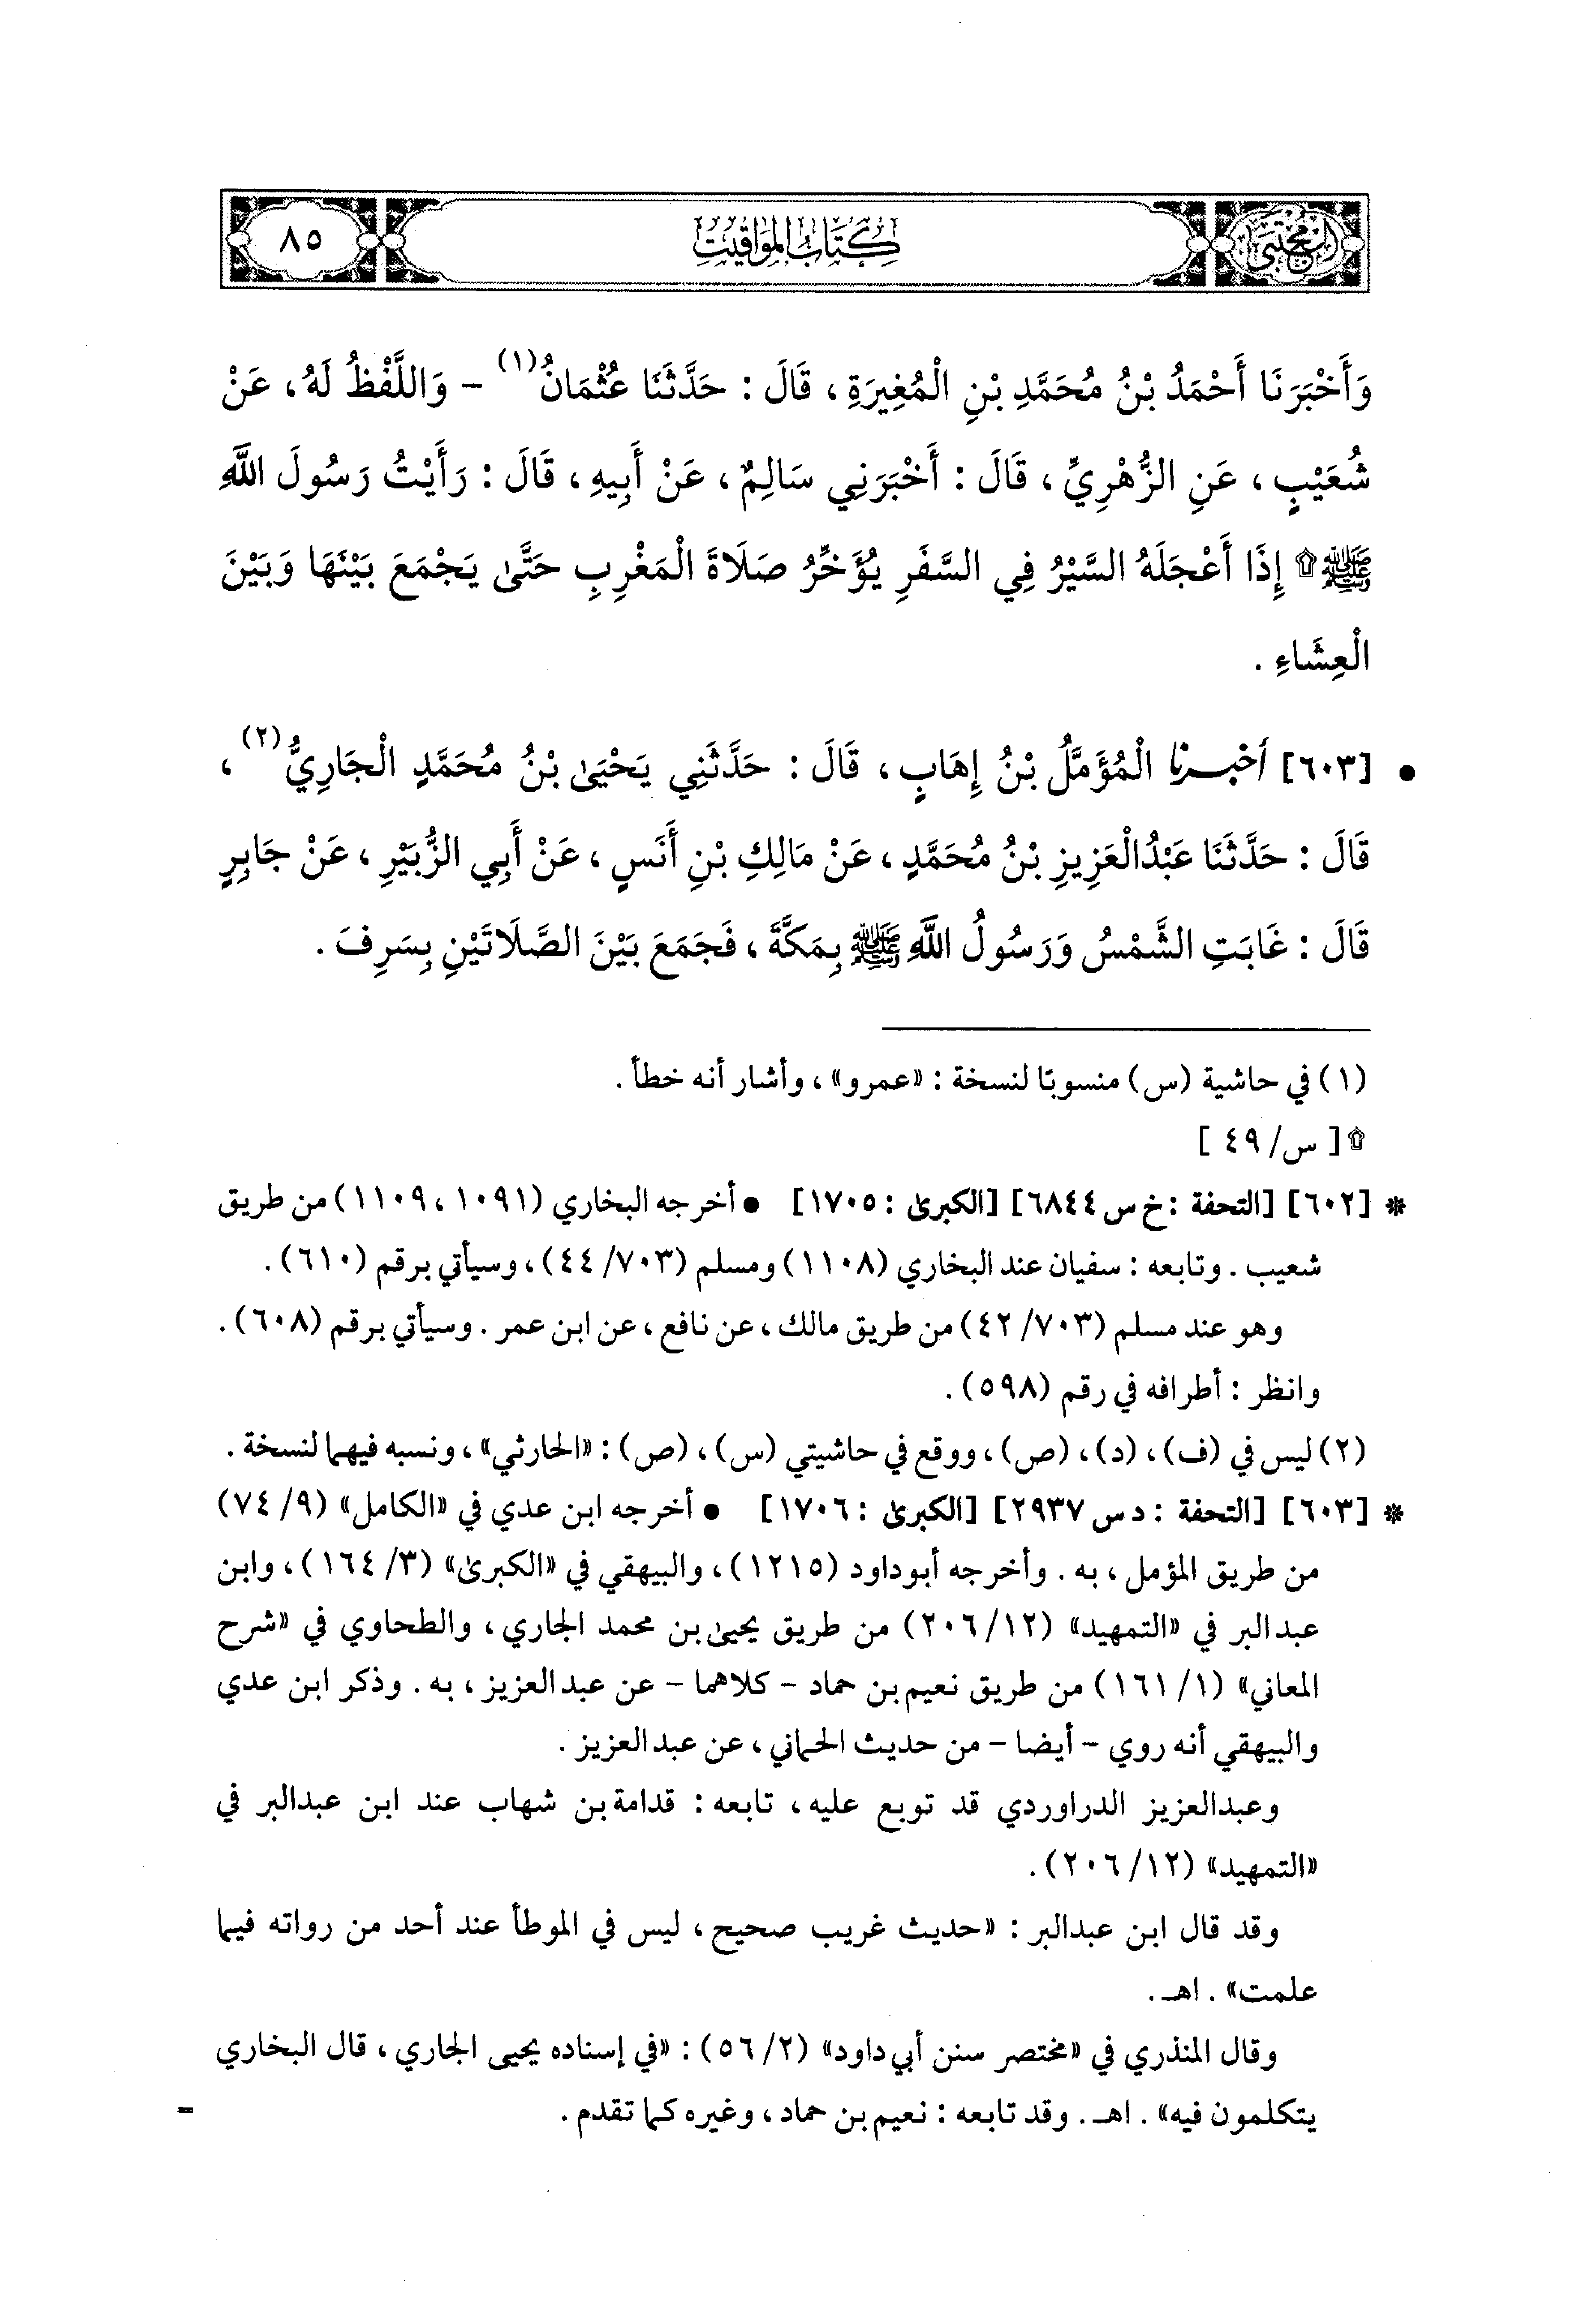 المجتبى
كتاب المواقيت
٨٥
وَأَخْبَرَنَا أَحْمَدُ بْنُ مُحَمَّدِ بْنِ الْمُغِيرَةِ ، قَالَ : حَدَّثَنَا عُثْمَانُ(١) - وَاللَّفْظُ لَهُ ، عَنْ
شُعَيْبٍ ، عَنِ الزُّهْرِيِّ ، قَالَ : أَخْبَرَنِي سَالِمٌ ، عَنْ أَبِيهِ ، قَالَ : رَأَيْتُ رَسُولَ اللَّهِ
ﷺ۩ إِذَا أَعْجَلَهُ السَّيْرُ فِي السَّفَرِ يُؤَخِّرُ صَلَاةَ الْمَغْرِبِ حَتَّىٰ يَجْمَعَ بَيْنَهَا وَبَيْنَ
الْعِشَاءِ .
• [٦٠٣] أخبرنا الْمُؤَمَّلُ بْنُ إِهَابٍ ، قَالَ : حَدَّثَنِي يَحْيَىٰ بْنُ مُحَمَّدٍ الْجَارِيُّ(٢) ،
قَالَ : حَدَّثَنَا عَبْدُالْعَزِيزِ بْنُ مُحَمَّدٍ ، عَنْ مَالِكِ بْنِ أَنَسٍ ، عَنْ أَبِي الزُّبَيْرِ ، عَنْ جَابِرٍ
قَالَ : غَابَتِ الشَّمْسُ وَرَسُولُ اللَّهِ ﷺ بِمَكَّةَ ، فَجَمَعَ بَيْنَ الصَّلَاتَيْنِ بِسَرِفَ .
(١) في حاشية (س) منسوبًا لنسخة : «عمرو» ، وأشار أنه خطأ .
۩ [ س/ ٤٩ ]
* [٦٠٢] [التحفة : خ س ٦٨٤٤] [الكبرىٰ : ١٧٠٥] • أخرجه البخاري (١٠٩١ ، ١١٠٩) من طريق
شعيب . وتابعه : سفيان عند البخاري (١١٠٨) ومسلم (٧٠٣/ ٤٤) ، وسيأتي برقم (٦١٠) .
وهو عند مسلم (٧٠٣/ ٤٢) من طريق مالك ، عن نافع ، عن ابن عمر . وسيأتي برقم (٦٠٨) .
وانظر : أطرافه في رقم (٥٩٨) .
(٢) ليس في (ف) ، (د) ، (ص) ، ووقع في حاشيتي (س) ، (ص) : «الحارثي» ، ونسبه فيهما لنسخة .
* [٦٠٣] [التحفة : د س ٢٩٣٧] [الكبرىٰ : ١٧٠٦] • أخرجه ابن عدي في «الكامل» (٩/ ٧٤)
من طريق المؤمل ، به . وأخرجه أبو داود (١٢١٥) ، والبيهقي في «الكبرىٰ» (٣/ ١٦٤) ، وابن
عبدالبر في «التمهيد» (١٢/ ٢٠٦) من طريق يحيىٰ بن محمد الجاري ، والطحاوي في «شرح
المعاني» (١/ ١٦١) من طريق نعيم بن حماد - كلاهما - عن عبدالعزيز ، به . وذكر ابن عدي
والبيهقي أنه روي - أيضا - من حديث الحماني ، عن عبدالعزيز .
وعبدالعزيز الدراوردي قد توبع عليه ، تابعه : قدامة بن شهاب عند ابن عبدالبر في
«التمهيد» (١٢/ ٢٠٦) .
وقد قال ابن عبدالبر : «حديث غريب صحيح ، ليس في الموطأ عند أحد من رواته فيما
علمت» . اهـ .
وقال المنذري في «مختصر سنن أبي داود» (٢/ ٥٦) : «في إسناده يحيى الجاري ، قال البخاري
يتكلمون فيه» . اهـ . وقد تابعه : نعيم بن حماد ، وغيره كما تقدم .